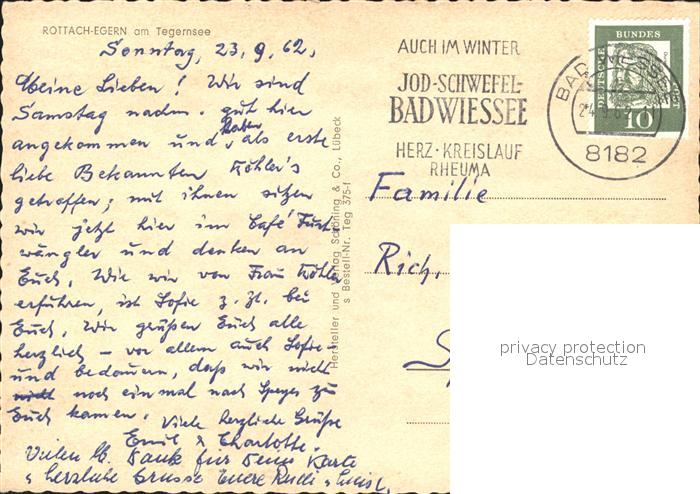 ROTTACH-EGERN am Tegernsee
Sonntag, 23.9.62.
Meine Lieben! Wir sind
Samstag nachm. gut hier
angekommen und haben, als erste
liebe Bekannten Köhler's
getroffen; mit ihnen sitzen
wir jetzt hier im Café Furt
wängler und denken an
Euch. Wie wir von Frau Köhler
erfuhren, ist Sofie z. Zt. bei
Euch. Wir grüßen Euch alle
herzlich – vor allem auch Sofie –
und bedauern, daß wir nicht
noch einmal nach Speyer zu
Euch kamen. Viele herzliche Grüße
Emil & Charlotte.
Vielen lb. Dank für Deine Karte
u herzliche Grüsse Euere Rudi u
Hersteller und Verlag Schöning & Co., Lübeck
s Bestell-Nr. Teg 375-f
AUCH IM WINTER
JOD-SCHWEFEL-
BAD WIESSEE
HERZ·KREISLAUF
RHEUMA
BAD WIESSEE
8182
DEUTSCHE
BUNDES
POST
10
Familie
Rich.
privacy protection
Datenschutz